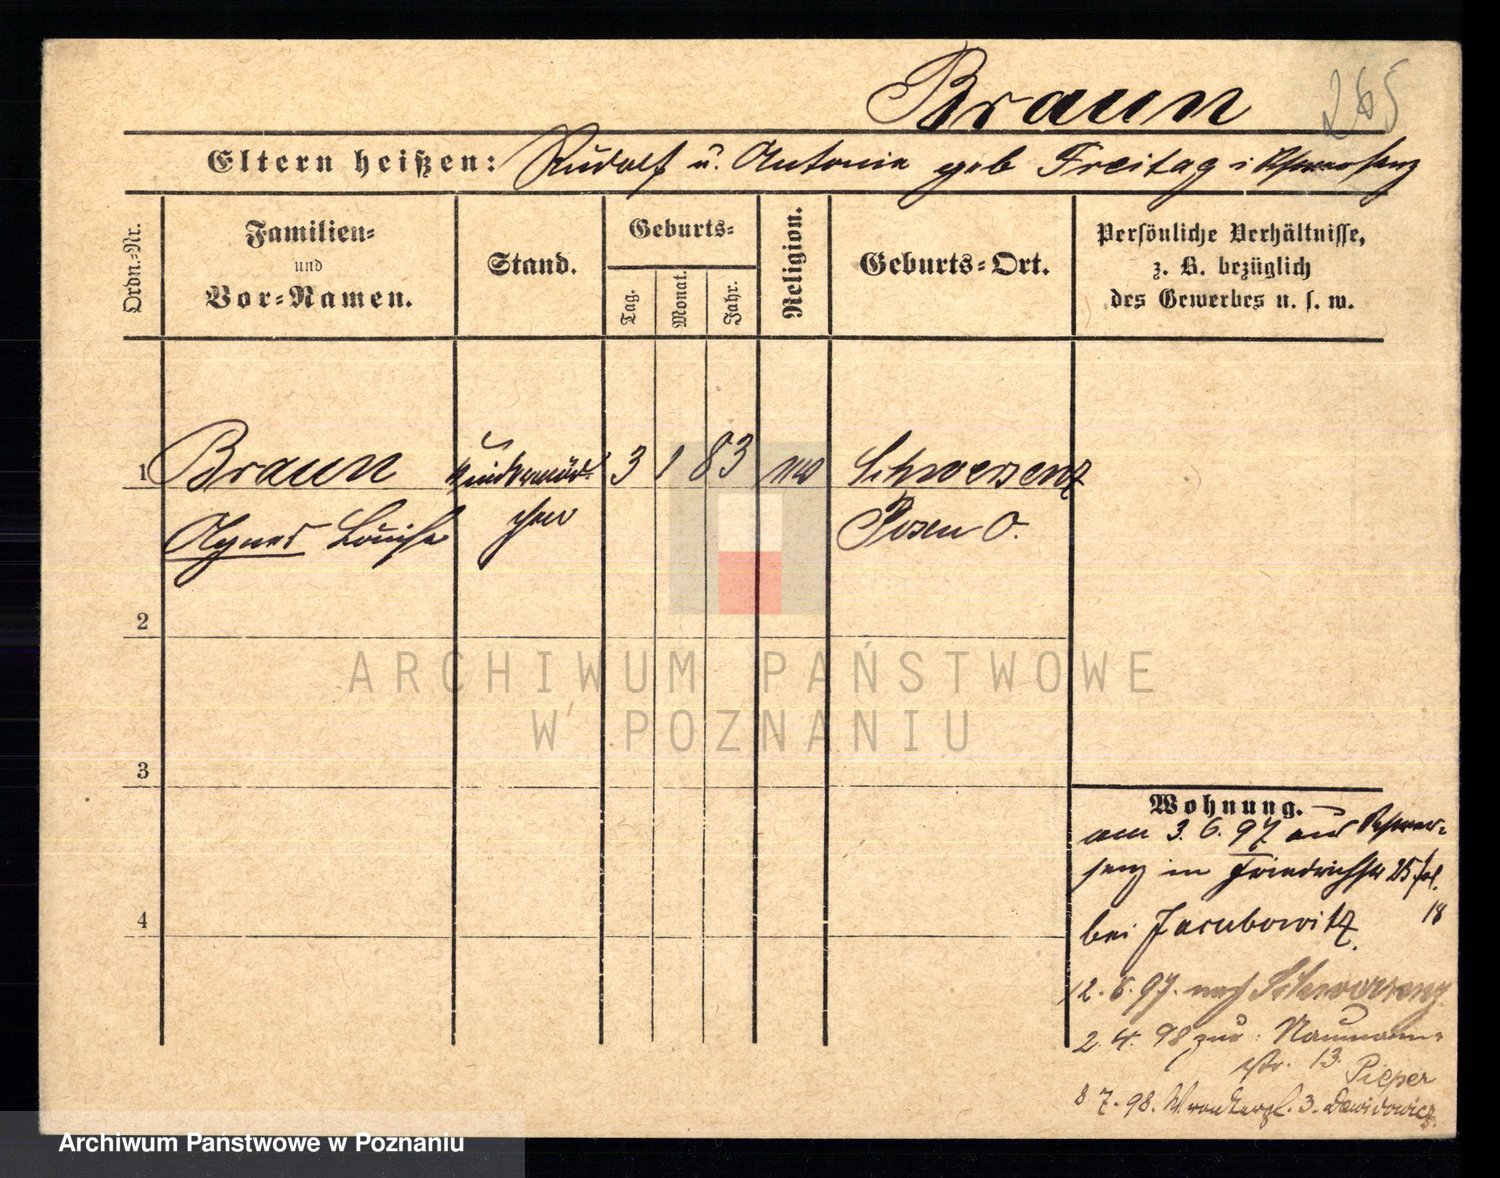 Braun 265
Eltern heißen: Rudolf u. Antonie geb Freitag i Schwersenz
Ordn.-Nr.
Familien-
und
Vor-Namen.
Stand.
Geburts-
Tag.
Monat.
Jahr.
Religion.
Geburts-Ort.
Persönliche Verhältnisse,
z. B. bezüglich
des Gewerbes u. s. w.
1 Braun Kindermäd- 3 1 83 Schwersenz
Agnes Louise chen Posen O.
2
3
4
Wohnung.
am 3. 6. 97 aus Schwer-
senz in Friedrichstr 25
18
bei Jacubowitz.
12. 6. 97. nach Schwersenz
2. 4. 98 zur. Naumann-
str. 13. Pieper
8 7. 98. Wronkerpl. 3. Dawidowicz.
ARCHIWUM PAŃSTWOWE
W POZNANIU
Archiwum Państwowe w Poznaniu